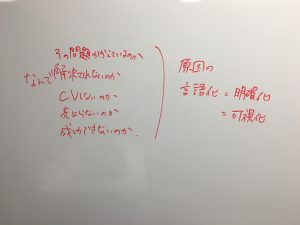 その問題が起こっているのか
なんで解決できないのか
CVしないのか
売れないのか
成功できないのか
原因の
言語化 = 明確化
= 可視化